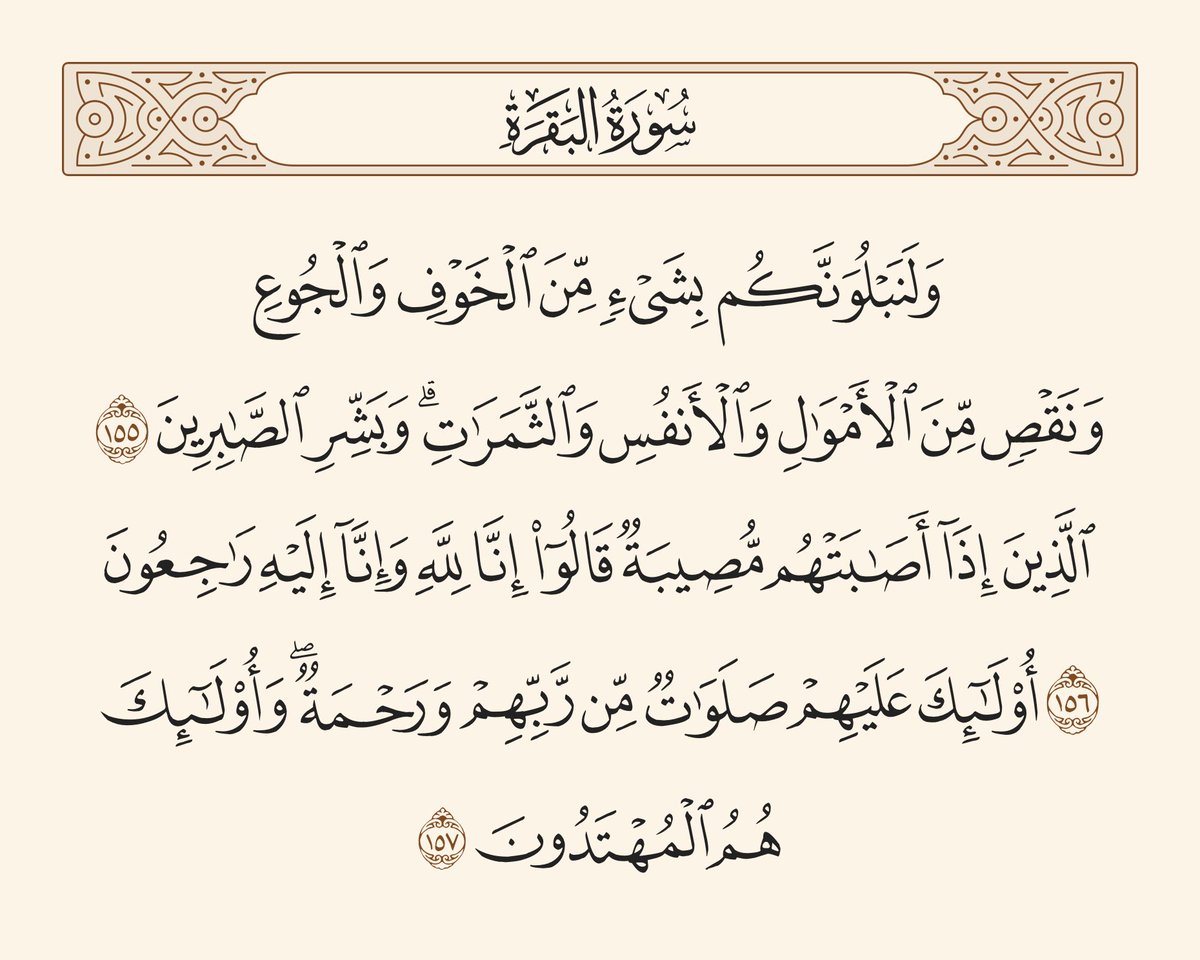 سُورَةُ البَقَرَةِ
وَلَنَبْلُوَنَّكُم بِشَىْءٍ مِّنَ ٱلْخَوْفِ وَٱلْجُوعِ
وَنَقْصٍ مِّنَ ٱلْأَمْوَٰلِ وَٱلْأَنفُسِ وَٱلثَّمَرَٰتِ ۗ وَبَشِّرِ ٱلصَّـٰبِرِينَ ١٥٥
ٱلَّذِينَ إِذَآ أَصَـٰبَتْهُم مُّصِيبَةٌ قَالُوٓا۟ إِنَّا لِلَّهِ وَإِنَّآ إِلَيْهِ رَٰجِعُونَ
١٥٦ أُو۟لَـٰٓئِكَ عَلَيْهِمْ صَلَوَٰتٌ مِّن رَّبِّهِمْ وَرَحْمَةٌ ۖ وَأُو۟لَـٰٓئِكَ
هُمُ ٱلْمُهْتَدُونَ ١٥٧